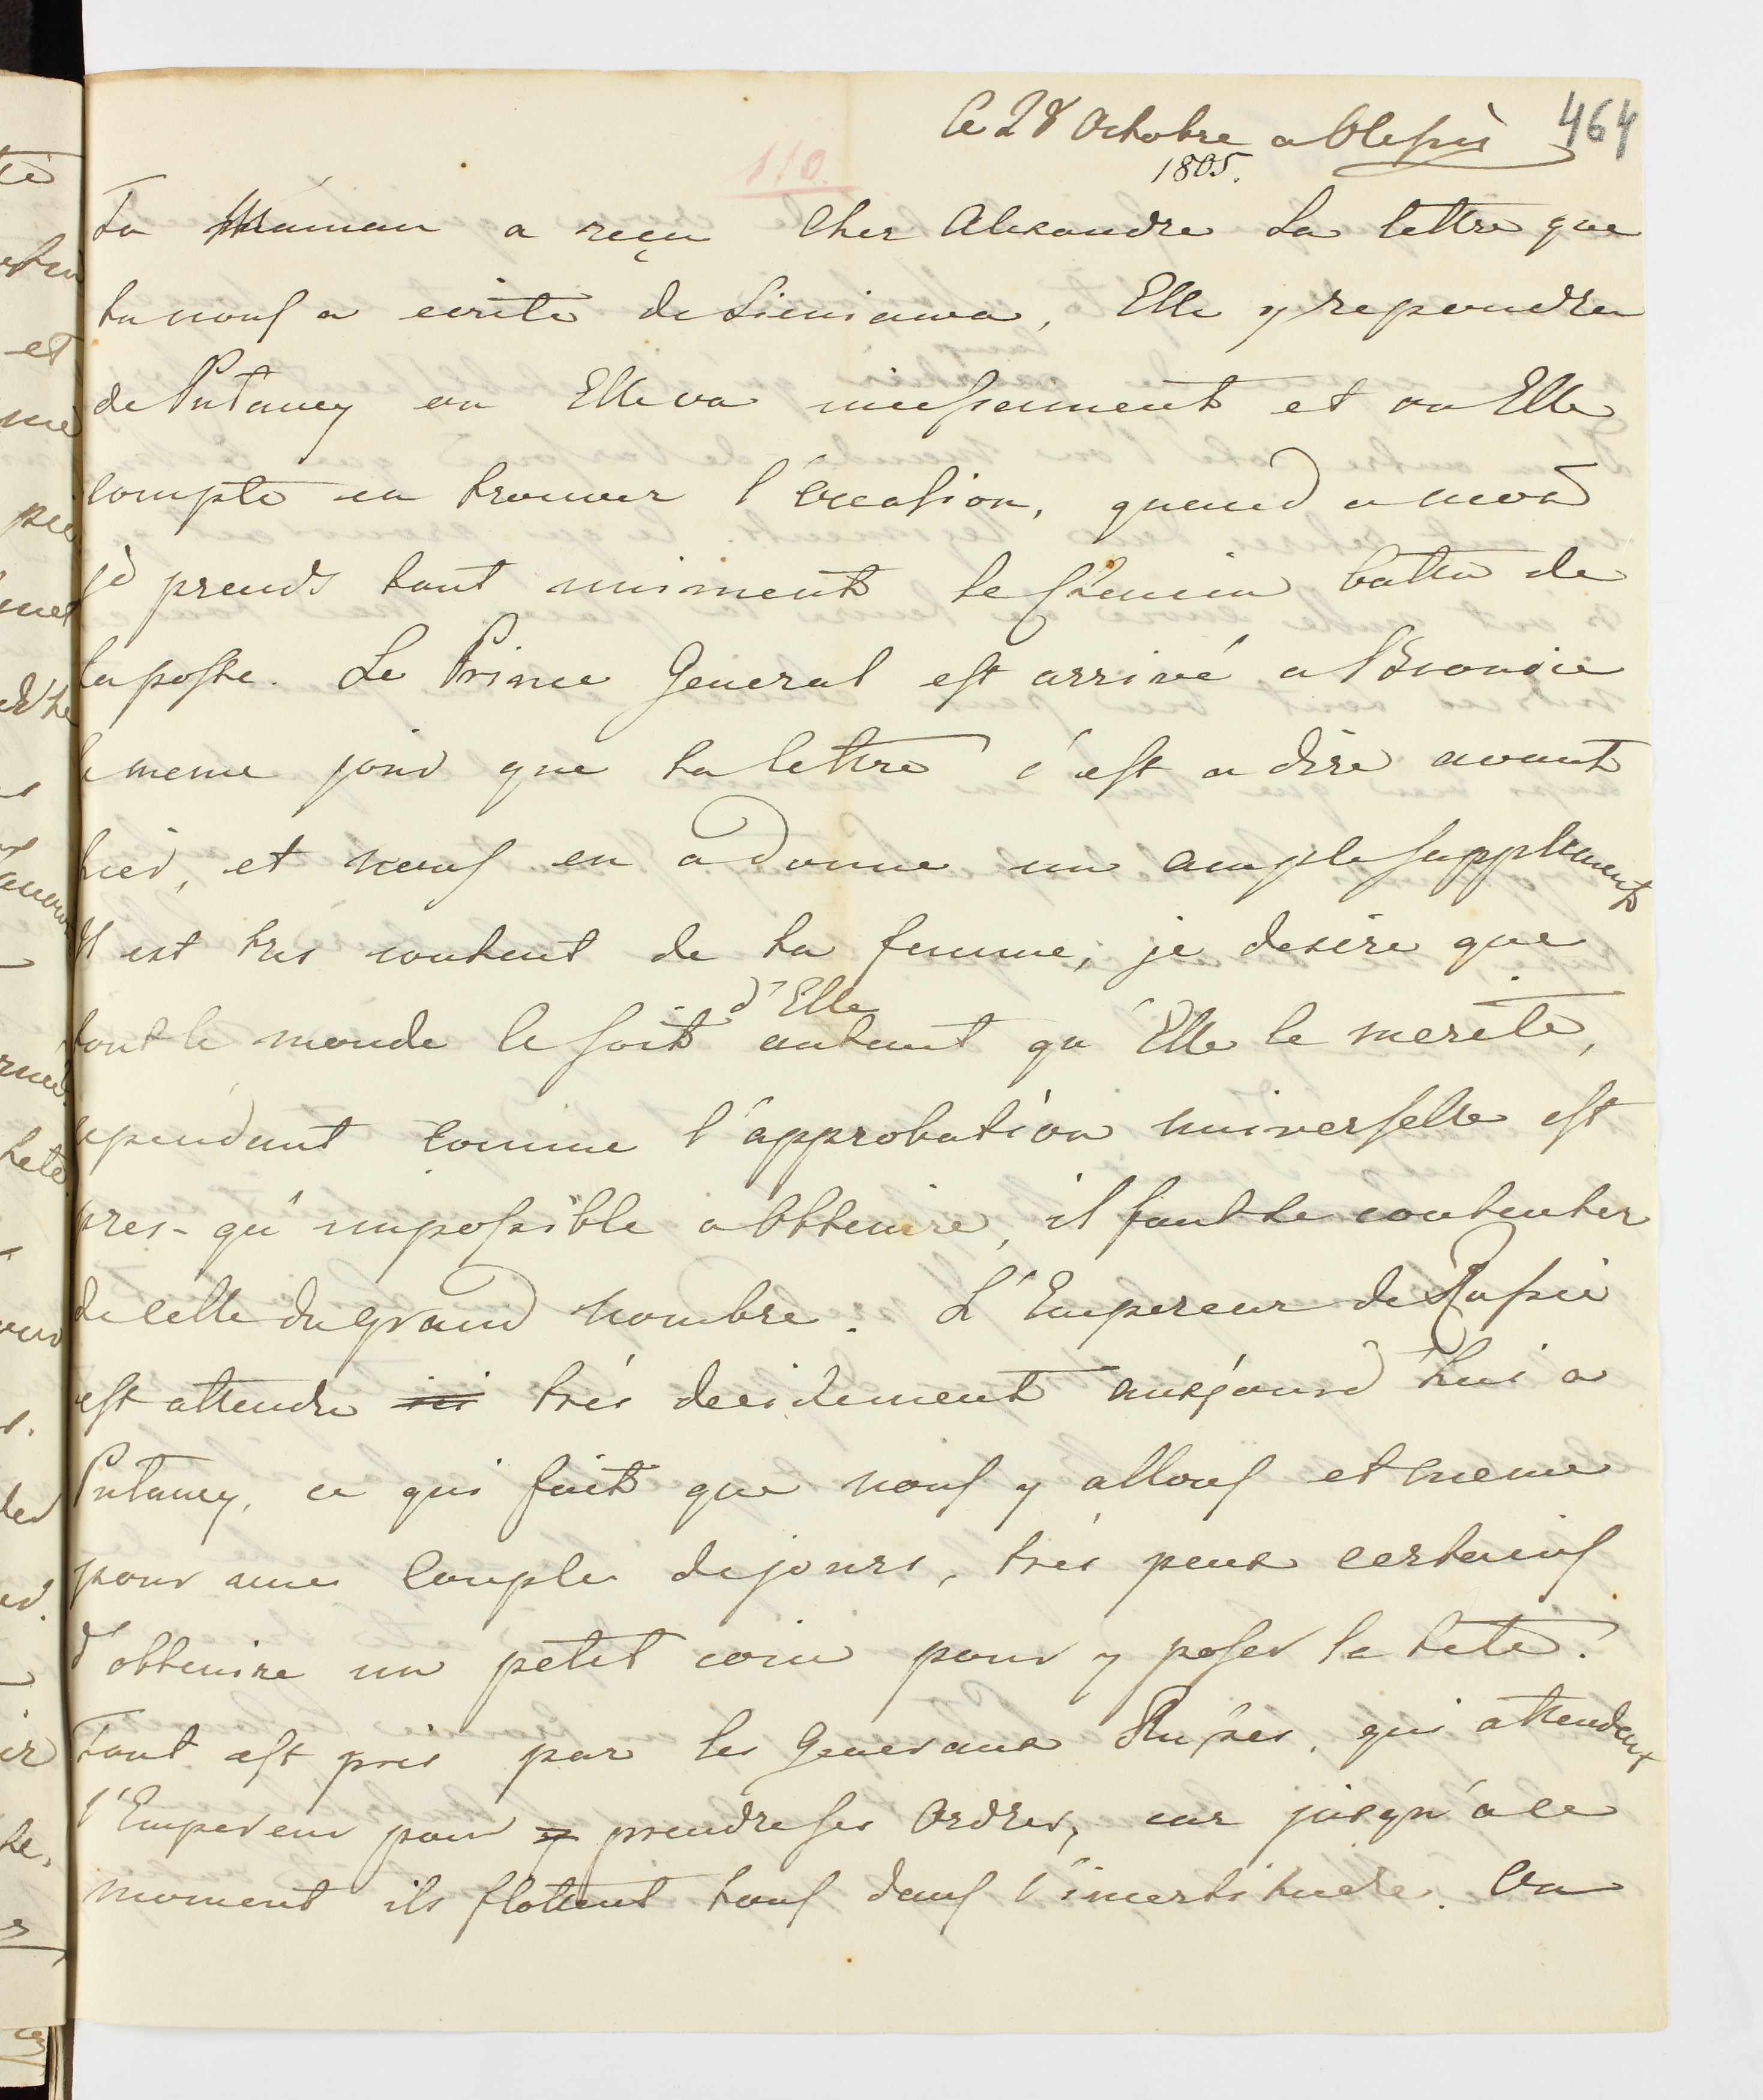 Ce 28 Octobre a Oleszÿs 464
1805.
110.
Ta Maman a reçu Cher Alexandre La lettre que
tu nous a ecrite de Sieniawa, Elle y repondra
de Putawy ou Elle va incessament et ou Elle
compte en trouver l'occasion, quand a moi
je prends tout uniment le chemin battu de
la poste. Le Prince General est arrivé a
le meme jour que ta lettre c'est a dire avant
hier, et nous en a donne un ample supplement
Il est tres content de ta femme, je desire que
tout le monde le soit d'Elle autant qu'Elle le merite,
cependant comme l'approbation universelle est
pres-qu'impossible a obtenire, il faut se contenter
de celle du grand nombre. L'Empereur de Russie
est attendu ici très decidement aujourd'hui a
Putawy, ce qui fait que nous y allons et meme
pour une couple de jours, très peux certains
d'obtenire un petit coin pour y poser la tete.
Tout est pris par les Generaux Russes, qui attendent
l'Empereur pour y prendre ses Ordres, car jusqu'a ce
moment ils flottent tous dans l'incertitude. On